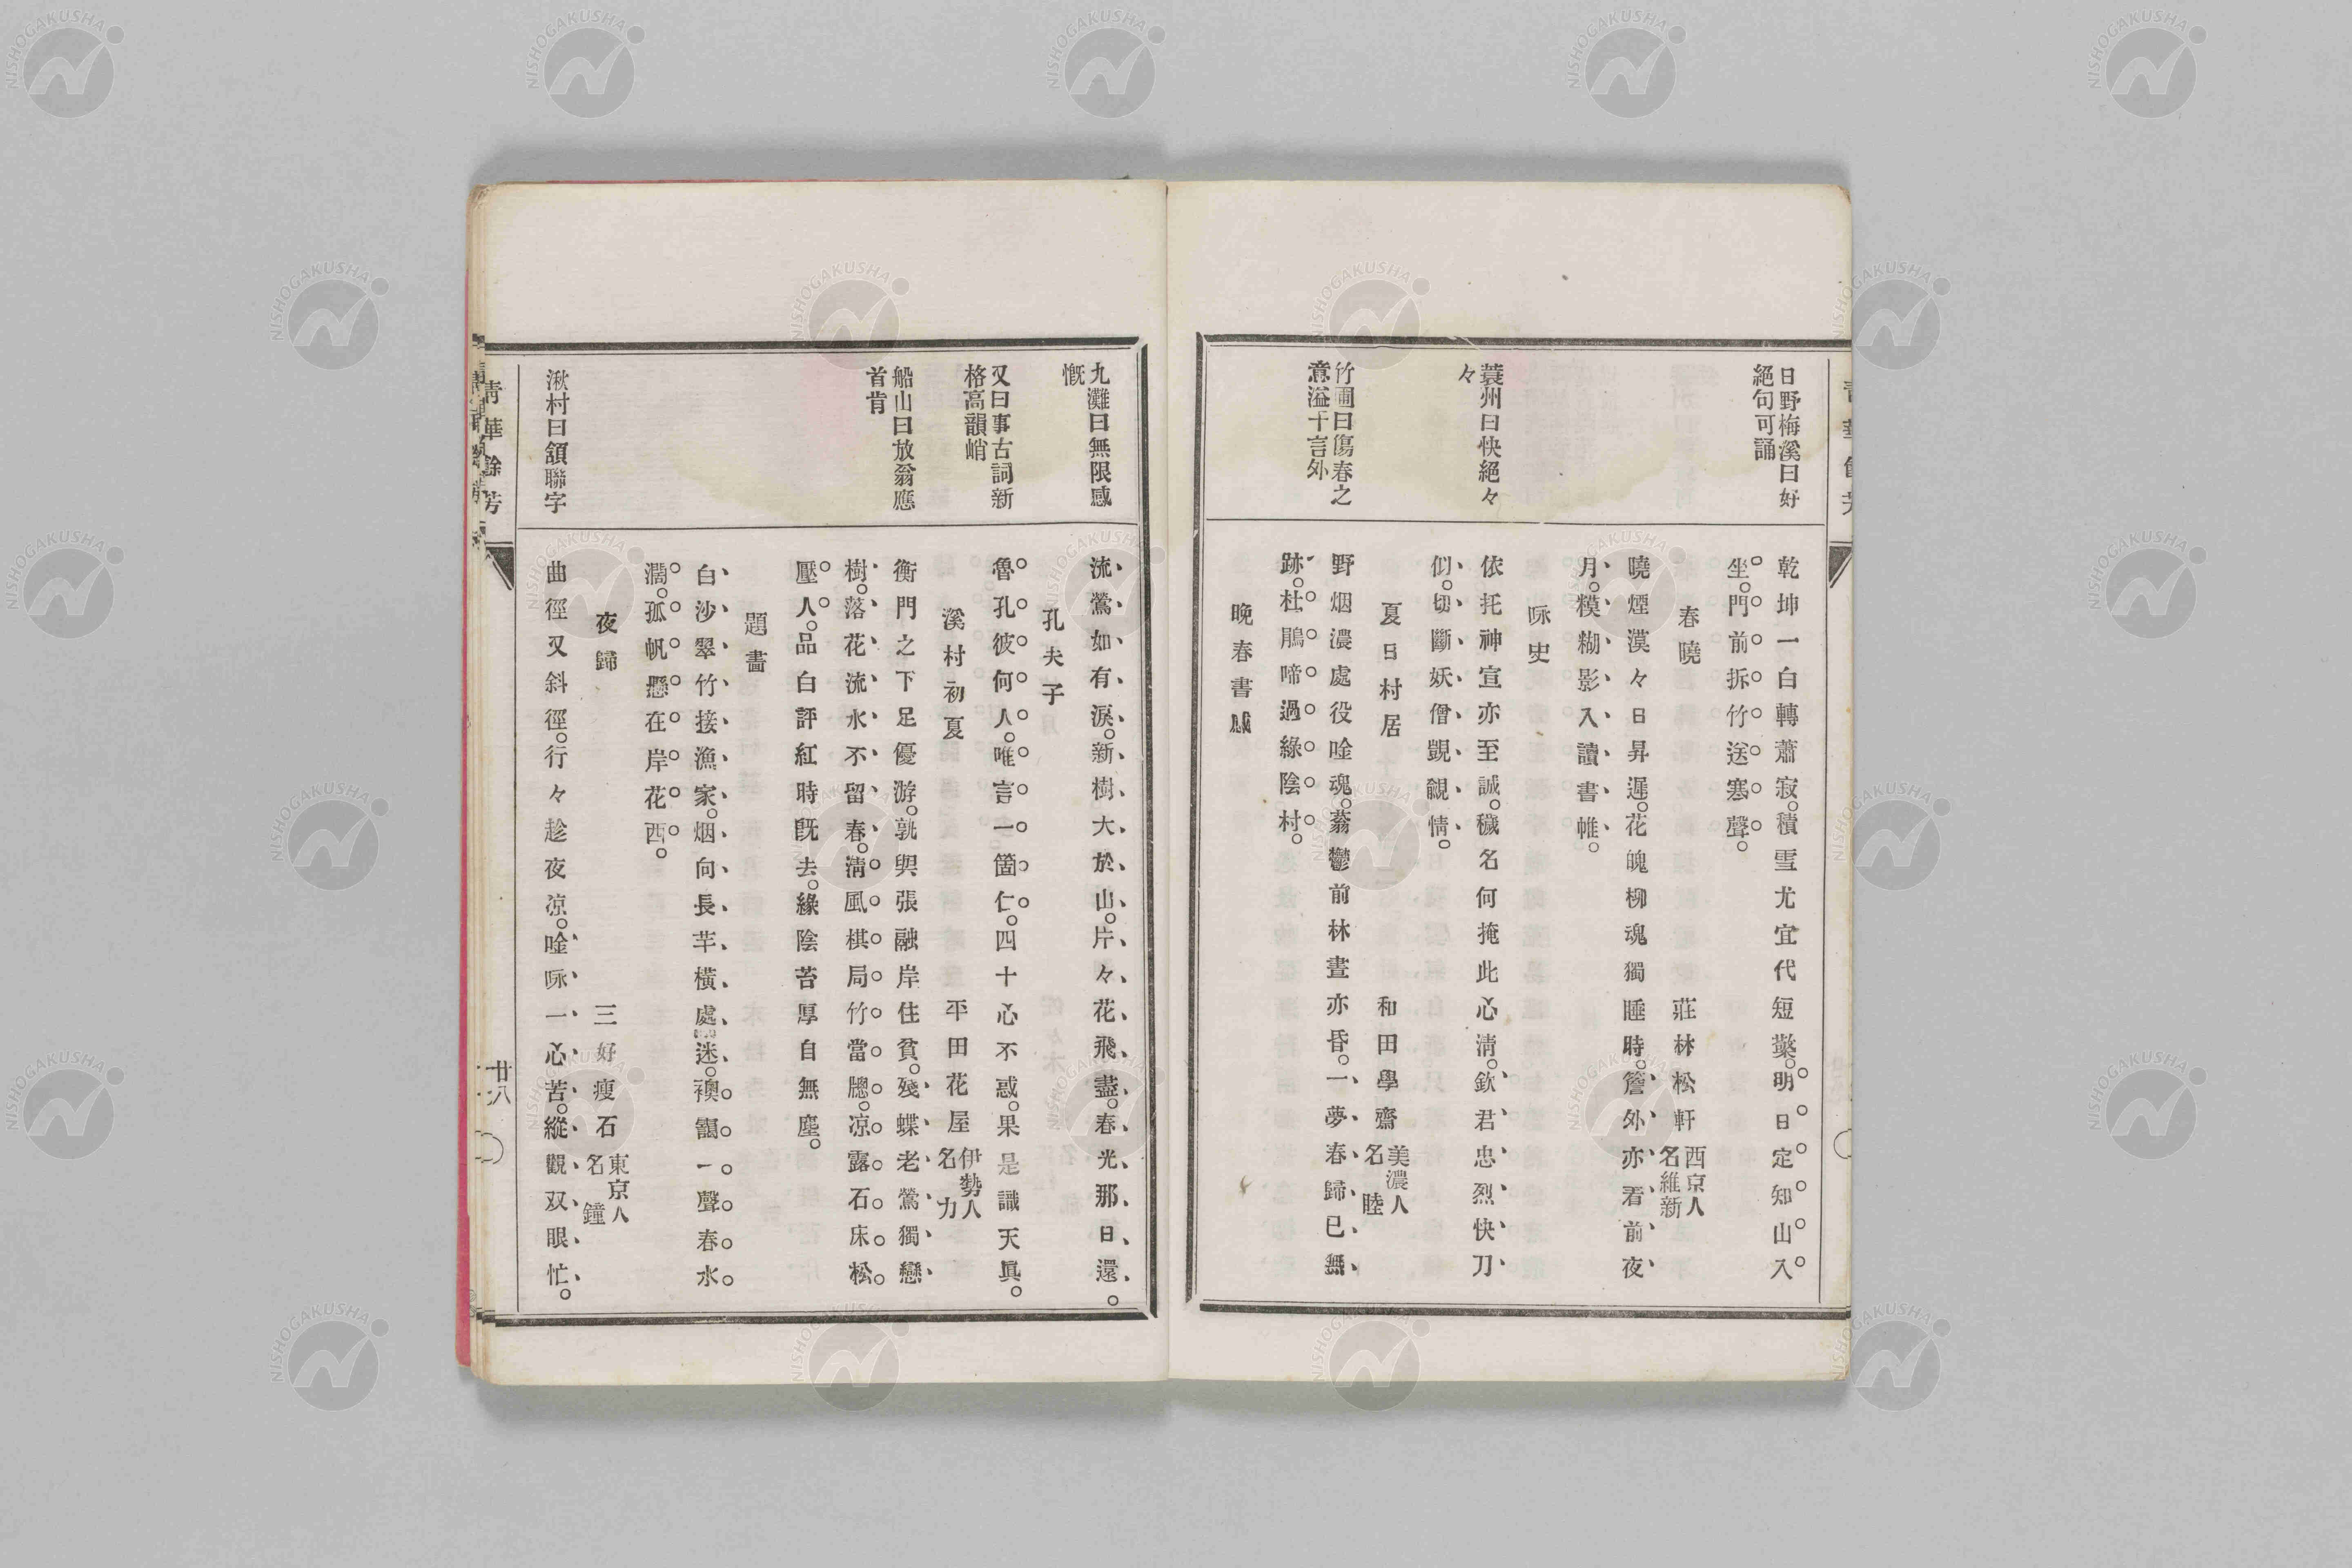 日野梅溪曰好
絕句可誦
乾坤一白轉蕭寂。積雪尤宜代短檠。明日定知山入
坐。門前拆竹送寒聲。
春曉
莊林松軒 西京人
名維新
曉煙漠々日昇遲。花魄柳魂獨睡時。簷外亦看前夜
月。糢糊影入讀書帷。
咏史
蓑州曰快絕々
々
依托神宣亦至誠。穢名何掩此心淸。欽君忠烈快刀
似。切斷妖僧覬覦情。
夏日村居
和田學齋 美濃人
名 睦
竹圃曰傷春之
意溢干言外
野烟濃處役唫魂。蓊鬱前林晝亦昏。一夢春歸已無
跡。杜鵑啼過綠陰村。
晚春書感
九灘曰無限感
慨
流鶯如有淚。新樹大於山。片々花飛盡。春光那日還。
孔夫子
又曰事古詞新
格高韻峭
魯孔彼何人。唯言一箇仁。四十心不惑。果是識天眞。
溪村初夏
平田花屋 伊勢人
名 力
船山曰放翁應
首肯
衡門之下足優游。孰與張融岸住貧。殘蝶老鶯獨戀
樹。落花流水不留春。淸風棋局竹當牕。凉露石床松
壓人。品白評紅時旣去。綠陰苔厚自無塵。
題畵
白沙翠竹接漁家。烟向長芊橫處迷。襖靄一聲春水
濶。孤帆懸在岸花西。
夜歸
三好瘦石 東京人
名 鐘
湫村曰頷聯字
曲徑又斜徑。行々趁夜凉。唫咏一心苦。縱觀双眼忙。
靑華餘芳
廿八